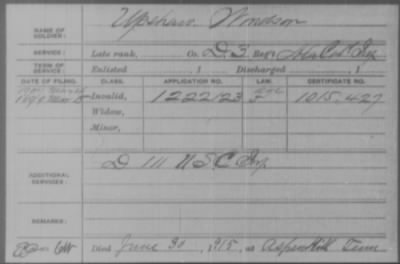 NAME OF SOLDIER: Upshaw Woodson
SERVICE: Late rank, Co. D. 3 Reg't Ala Col'd Inf
TERM OF SERVICE: Enlisted , 1 Discharged , 1
DATE OF FILING. CLASS. APPLICATION NO. LAW. CERTIFICATE NO.
Invalid, 1222123 1015,427
Widow,
Minor,
ADDITIONAL SERVICES: D 111 U S C Inf
REMARKS:
Died June 30, 1915, at Aspen Hill Tenn